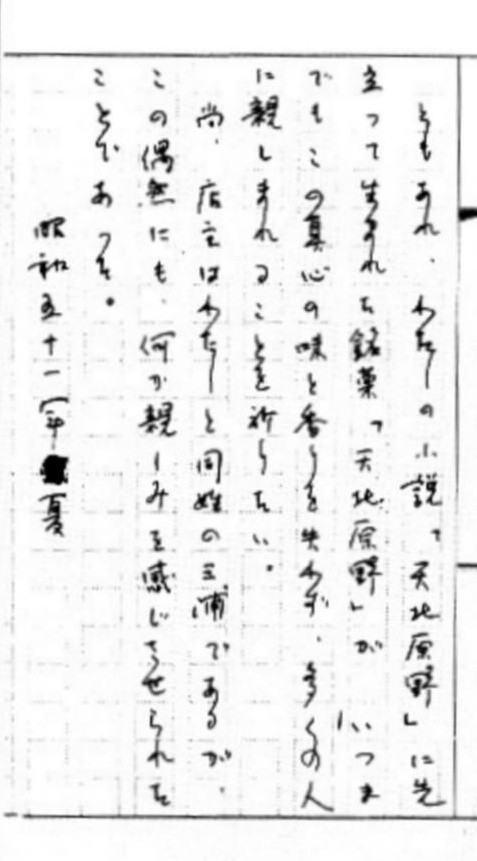 ともあれ、わたしの小説「天北原野」に先
立って生まれた銘菓「天北原野」が、いつま
でもこの真心の味と香りを失わず、多くの人
に親しまれることを祈りたい。
尚、店主はわたしと同姓の三浦であるが、
この偶然にも、何か親しみを感じさせられた
ことであった。
昭和五十一年夏